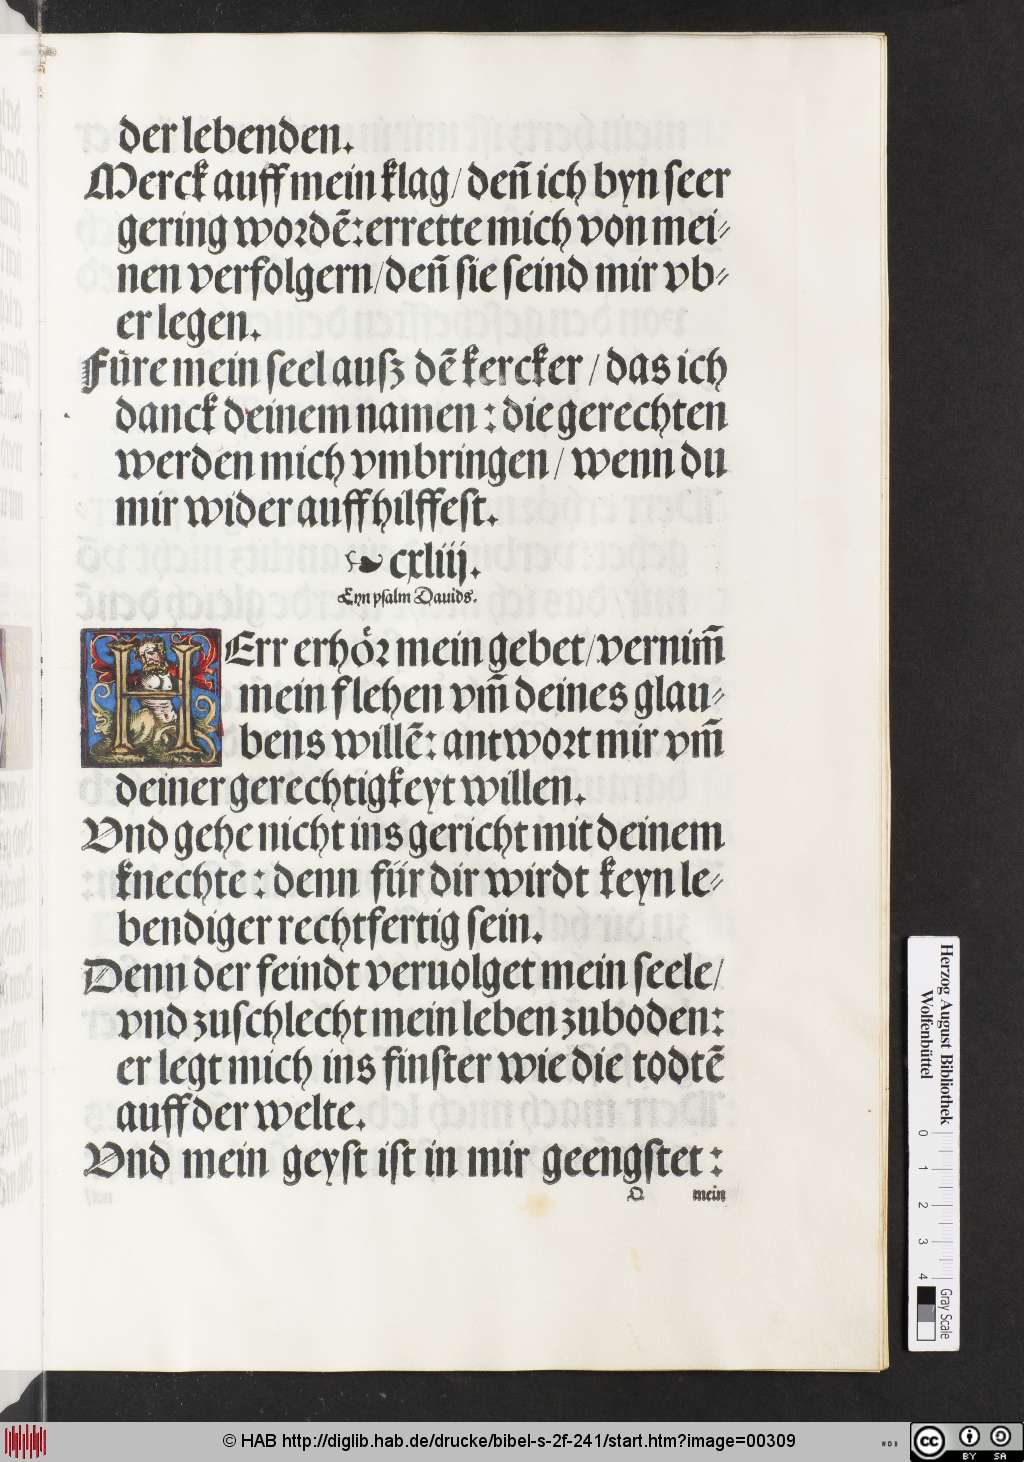 der lebenden.
Merck auff mein klag/ deñ ich byn seer
gering wordẽ: errette mich von mei⸗
nen verfolgern/ deñ sie seind mir vb⸗
er legen.
Fůre mein seel ausz dẽ kercker / das ich
danck deinem namen : die gerechten
werden mich vmbringen / wenn du
mir wider auffhilffest.
☙ cxliij.
Eyn psalm Dauids.
HErr erhoͤr mein gebet/ vernim̃
mein flehen vm̃ deines glau⸗
bens willẽ: antwort mir vm̃
deiner gerechtigkeyt willen.
Vnd gehe nicht ins gericht mit deinem
knechte : denn für dir wirdt keyn le⸗
bendiger rechtfertig sein.
Denn der feindt veruolget mein seele/
vnd zuschlecht mein leben zuboden:
er legt mich ins finster wie die todtẽ
auff der welte.
Vnd mein geyst ist in mir geengstet :
O mein
Herzog August Bibliothek
Wolfenbüttel
0 1 2 3 4
Gray Scale
© HAB http://diglib.hab.de/drucke/bibel-s-2f-241/start.htm?image=00309
WDB
cc BY SA